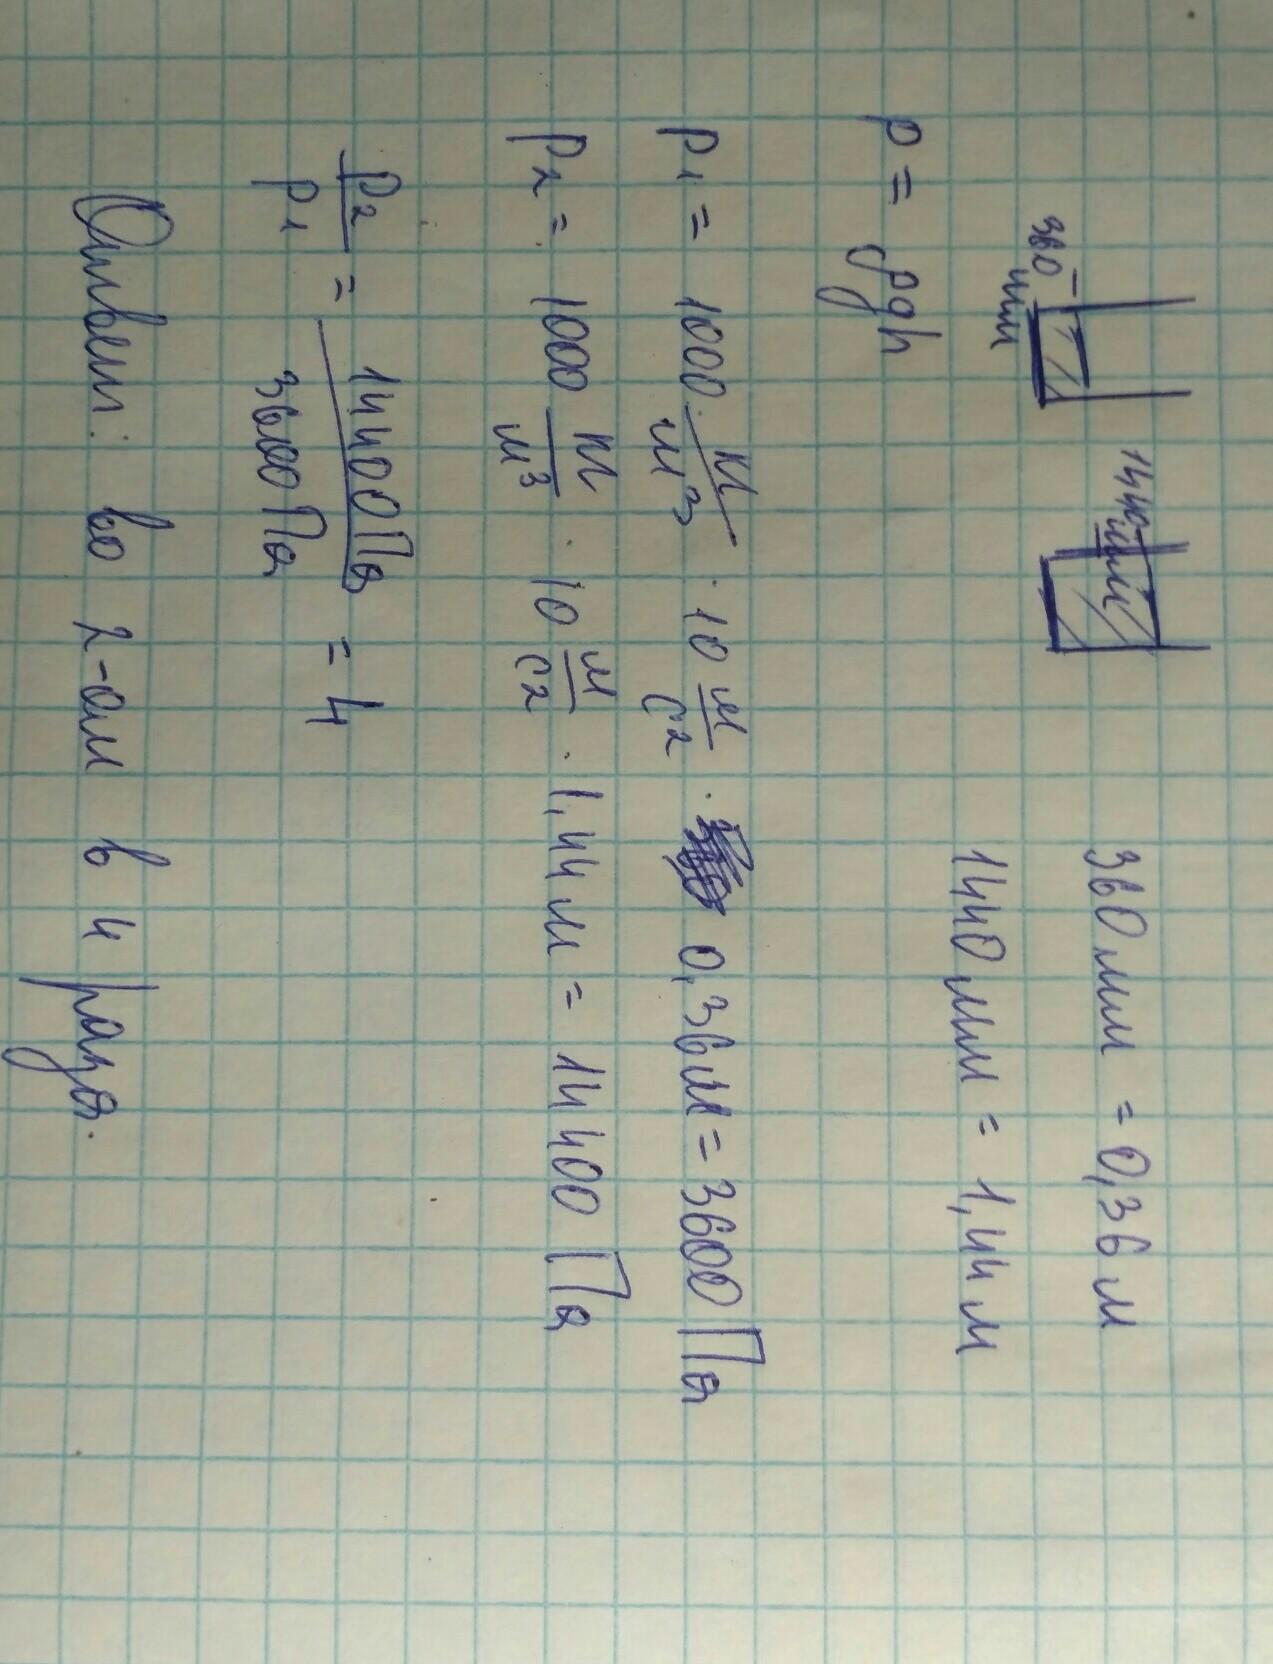 360 мм
1440 мм
360 мм = 0,36 м
1440 мм = 1,44 м
p = ρgh
p₁ = 1000 кг/м³ · 10 м/с² · 0,36 м = 3600 Па
p₂ = 1000 кг/м³ · 10 м/с² · 1,44 м = 14400 Па
p₂/p₁ = 14400 Па/3600 Па = 4
Ответ: во 2-ом в 4 раза.